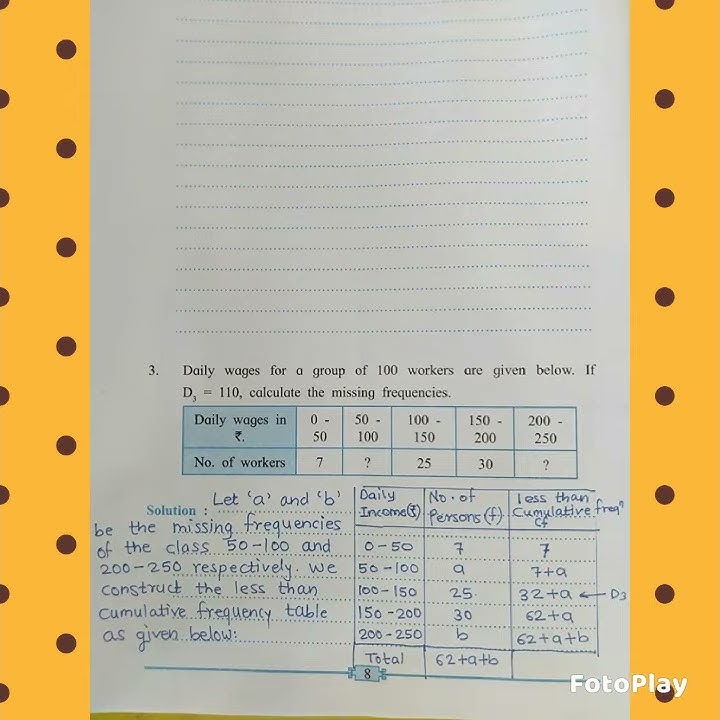 3. Daily wages for a group of 100 workers are given below. If
D3 = 110, calculate the missing frequencies.
Daily wages in ₹. 0 - 50 50 - 100 100 - 150 150 - 200 200 - 250
No. of workers 7 ? 25 30 ?
Solution : Let 'a' and 'b'
be the missing frequencies
of the class 50-100 and
200-250 respectively. We
construct the less than
cumulative frequency table
as given below:
Daily Income(₹) No. of Persons (f) less than Cumulative freqn cf
0-50 7 7
50-100 a 7+a
100-150 25 32+a ← D3
150-200 30 62+a
200-250 b 62+a+b
Total 62+a+b
8
FotoPlay